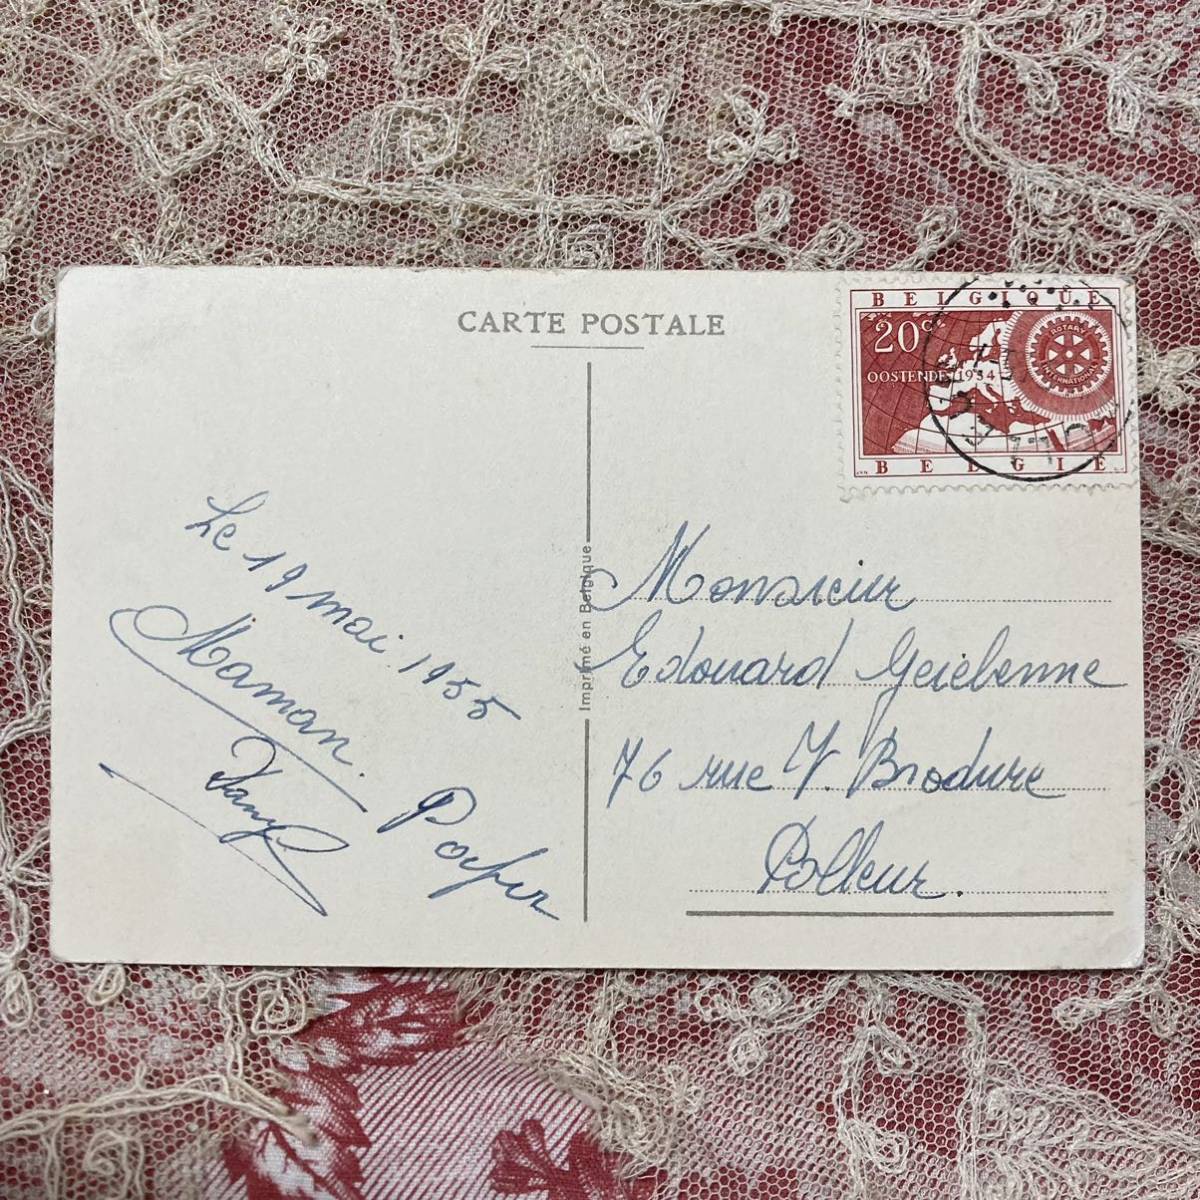 CARTE POSTALE
BELGIQUE
20c
OOSTENDE 1954
ROTARY
INTERNATIONAL
BELGIË
Le 19 mai. 1955
Maman.
Papa
Imprimé en Belgique
Monsieur
Edouard
76 rue J. Brodure
Polleur.